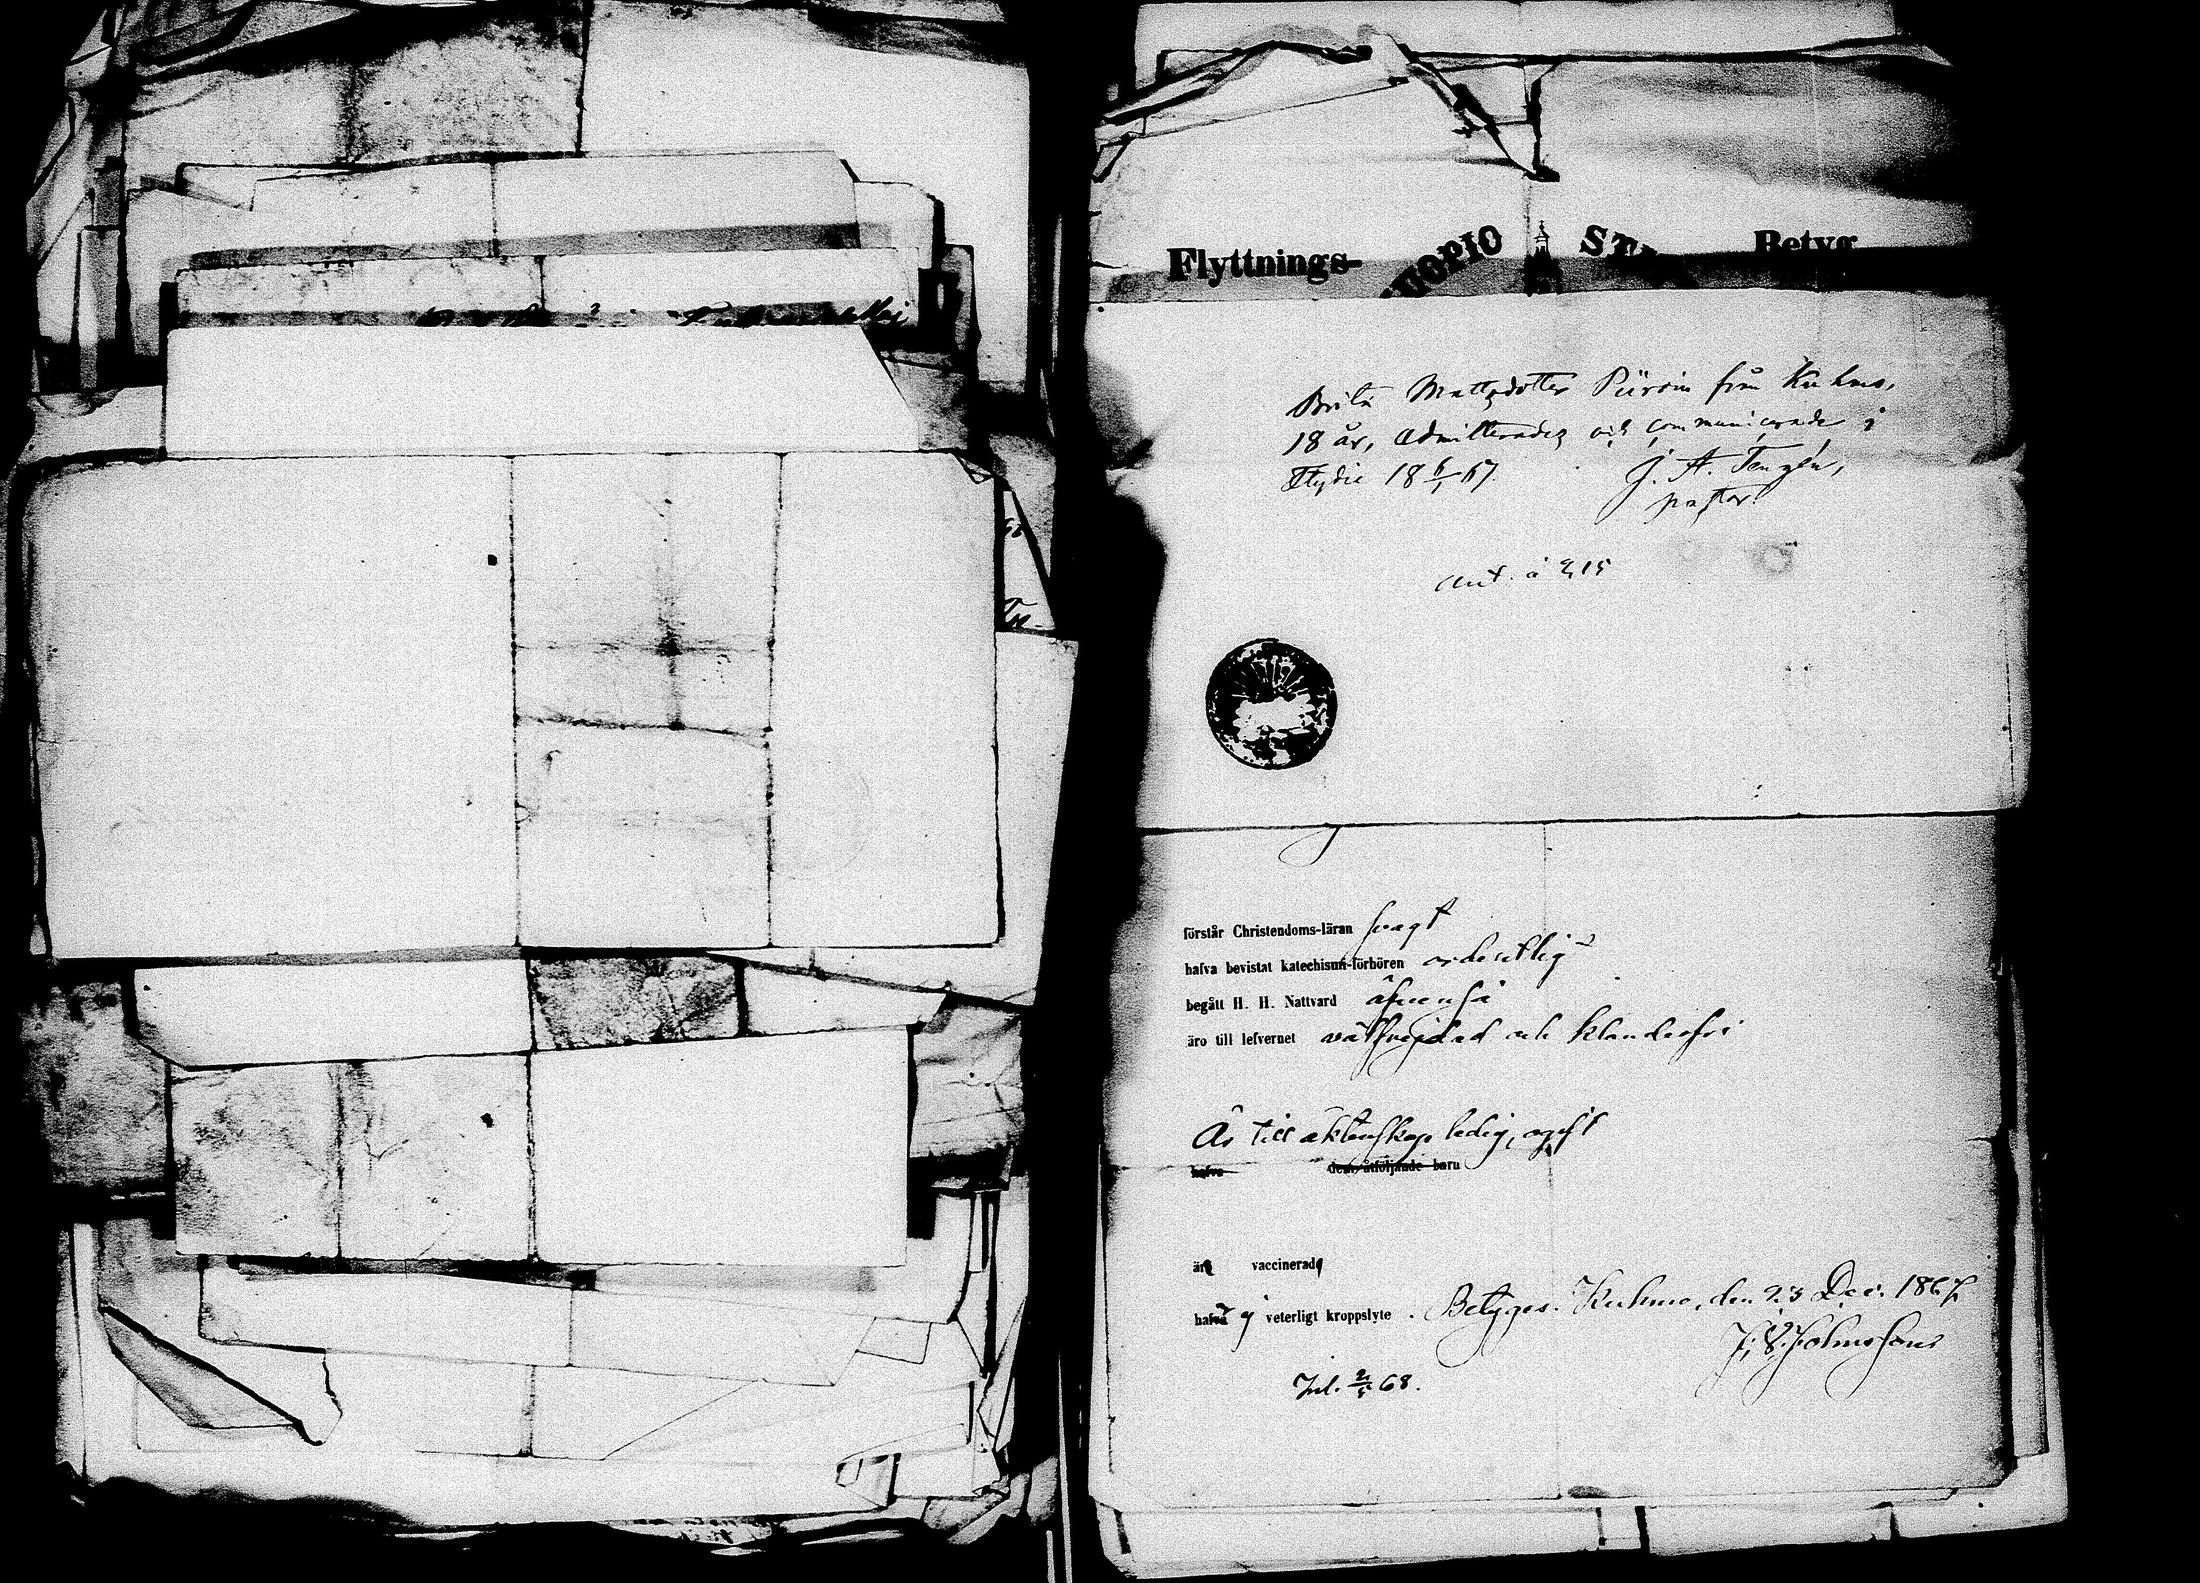 Flyttnings- KUOPIO ST Betyg
Brita Mattsdotter Piirain från Kuhmo,
18 år, admitterades och communicerade i
18 6/1 67. J. A. Tengén,
pastor.
ant. å 215
förstår Christendoms-läran svagt
hafva bevistat katechismi-förhören ordentligt
begått H. H. Nattvard äfvenså
äro till lefvernet välfrejdad och klanderfri
Är till äktenskap ledig, ogift
hafva dem åtföljande barn
är vaccinerad
hafva ej veterligt kroppslyte. Betygas. Kuhmo, den 23 Dec. 1867
Inl. 2/5 68.